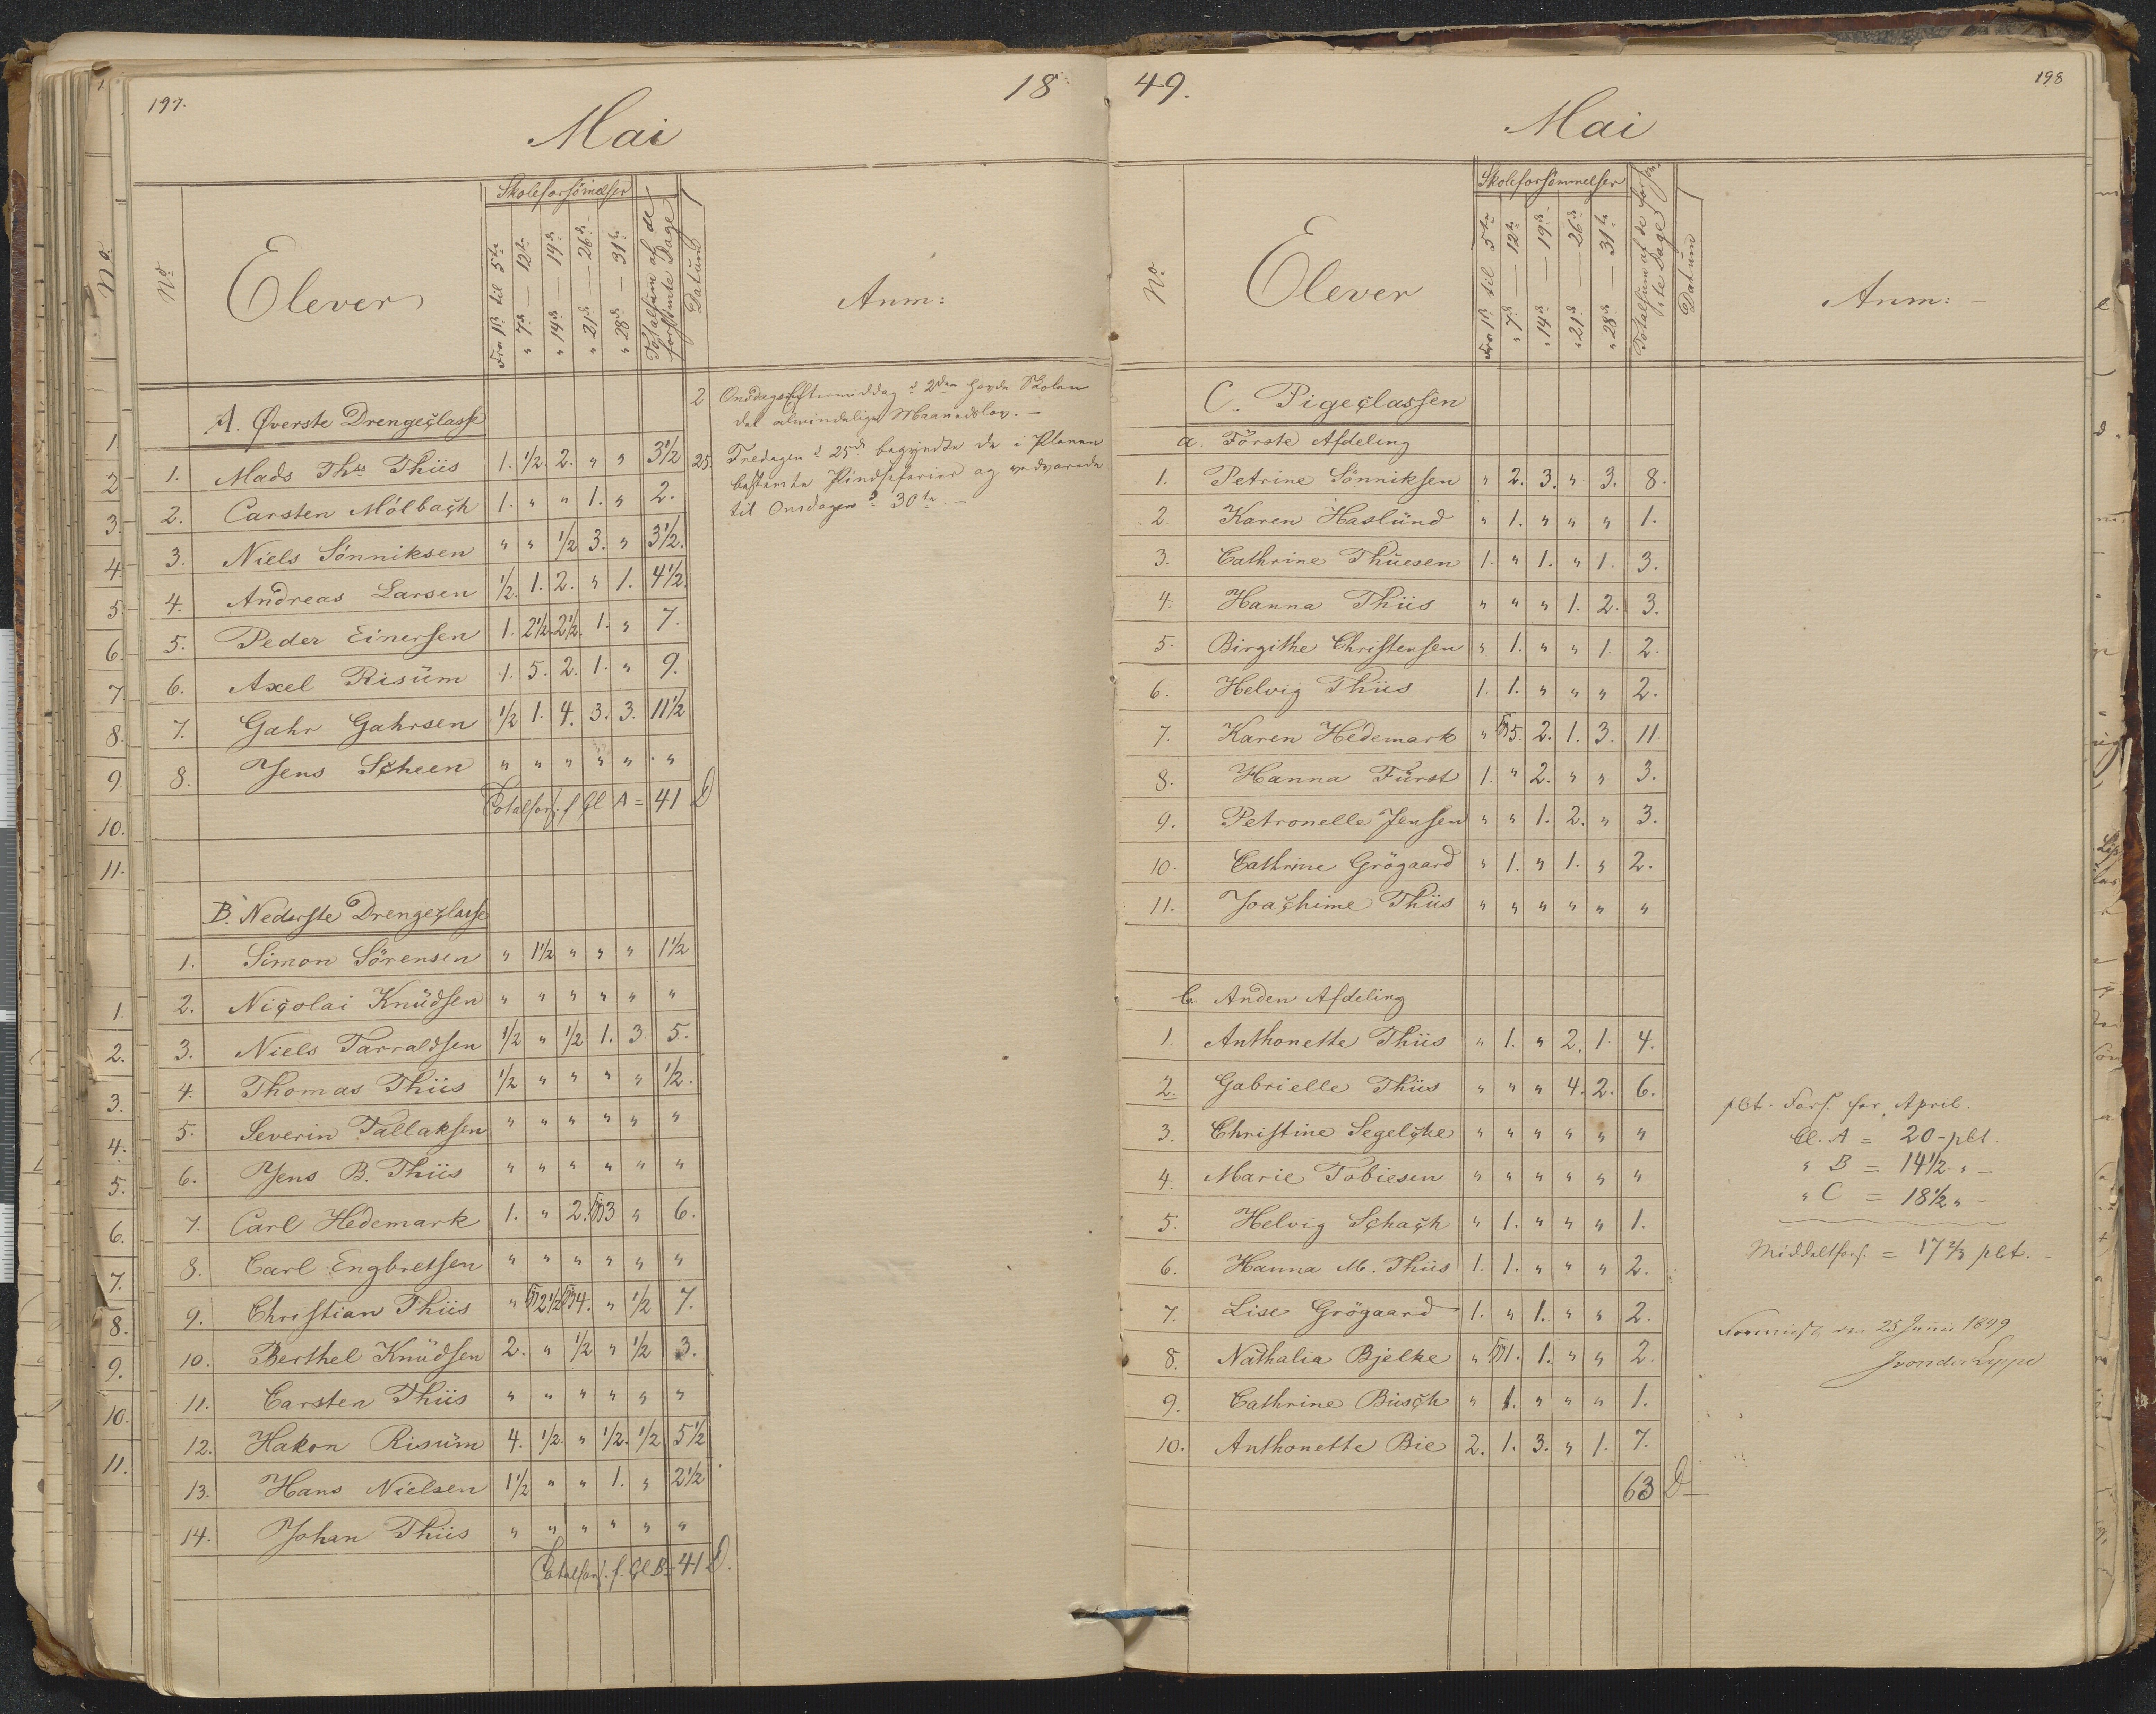 197.
18
Mai
No
Elever
Skoleforsömelser
Fra 1ste til 5te
" 7de — 12te
" 14de — 19de
" 21de — 26de
" 28de — 31te
Totalsum af de forsömte Dage
Datum
Anm:
A. Øverste Drengeclasse
1. Mads Ths Thiis 1. 1/2. 2. " " 3 1/2
2. Carsten Mölbach 1. " " 1. " 2.
3. Niels Sönniksen " " 1/2 3. " 3 1/2.
4. Andreas Larsen 1/2. 1. 2. " 1. 4 1/2.
5. Peder Einersen 1. 2 1/2. 2 1/2. 1. " 7.
6. Axel Risüm 1. 5. 2. 1. " 9.
7. Gahr Gahrsen 1/2 1. 4. 3. 3. 11 1/2
8. Jens Scheen " " " " " "
Totalfors. f Cl A = 41 D
2 Onsdagseftermiddag d 2den havde Skolen
det almindelige Maanedslov. —
25 Fredagen d 25de begyndte de i Planen
bestemte Pindseferier og vedvarede
til Onsdagen d 30te. —
B. Nederste Drengeclasse
1. Simon Sörensen " 1 1/2 " " " 1 1/2
2. Nicolai Knüdsen " " " " " "
3. Niels Tarraldsen 1/2 " 1/2 1. 3. 5.
4. Thomas Thiis 1/2 " " " " 1/2.
5. Severin Tallaksen " " " " " "
6. Jens B. Thiis " " " " " "
7. Carl Hedemark 1. " 2. 3 " 6.
8. Carl Engbretsen " " " " " "
9. Christian Thiis " 2 1/2 4. " 1/2 7.
10. Berthel Knüdsen 2. " 1/2 " 1/2 3.
11. Carsten Thiis " " " " " "
12. Hakon Risüm 4. 1/2. " 1/2. 1/2 5 1/2
13. Hans Nielsen 1 1/2 " " 1. " 2 1/2
14. Johan Thiis " " " " " "
Totalfors. f. Cl B = 41 D.
49.
198
Mai
No
Elever
Skoleforsömmelser
Fra 1ste til 5te
" 7de — 12te
" 14de — 19de
" 21de — 26de
" 28de — 31te
Totalsum af de forsömte Dage
Datum
Anm: —
C. Pigeclassen
a. Förste Afdeling
1. Petrine Sönniksen " 2. 3. " 3. 8.
2. Karen Haslünd " 1. " " " 1.
3. Cathrine Thüesen 1. " 1. " 1. 3.
4. Hanna Thiis " " " 1. 2. 3.
5. Birgithe Christensen " 1. " " 1. 2.
6. Helvig Thiis 1. 1. " " " 2.
7. Karen Hedemark " 5. 2. 1. 3. 11.
8. Hanna Fürst 1. " 2. " " 3.
9. Petronelle Jensen " " 1. 2. " 3.
10. Cathrine Grögaard " 1. " 1. " 2.
11. Joachime Thiis " " " " " "
b. Anden Afdeling
1. Anthonette Thiis " 1. " 2. 1. 4.
2. Gabrielle Thiis " " " 4. 2. 6.
3. Christine Segelcke " " " " " "
4. Marie Tobiesen " " " " " "
5. Helvig Schach " 1. " " " 1.
6. Hanna M. Thiis 1. 1. " " " 2.
7. Lise Grögaard 1. " 1. " " 2.
8. Nathalia Bjelke " 1. 1. " " 2.
9. Cathrine Büsch " 1. " " " 1.
10. Anthonette Bie 2. 1. 3. " 1. 7.
63 D
pCt. Fors. for April.
Cl. A = 20 - pCt.
" B = 14 1/2 - " —
" C = 18 1/2 " —
Middelfors. = 17 2/3 pCt. —
Foreviist den 25 Junii 1849
JvonderLippe
No
1.
2
3.
4.
5
6.
7
8.
9.
10.
11.
1.
2.
3.
4.
5.
6.
7.
8.
9.
10.
11.